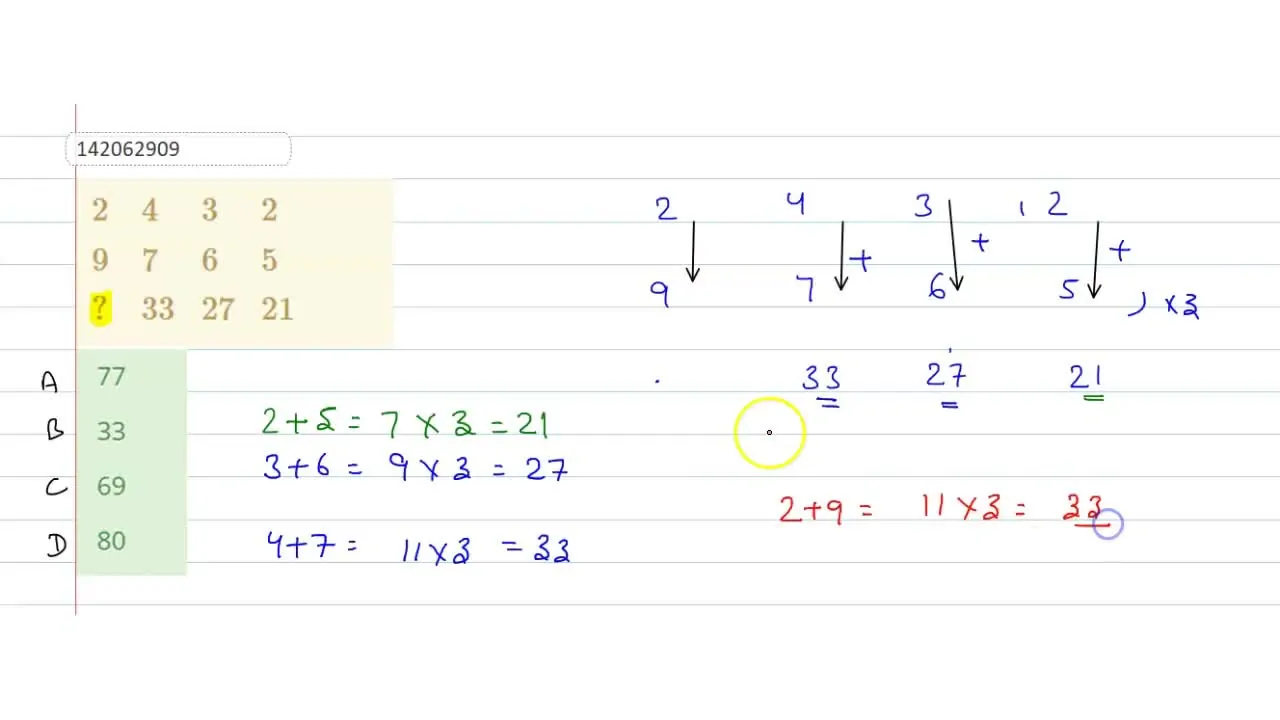 142062909
2 4 3 2
9 7 6 5
? 33 27 21
A 77
B 33
C 69
D 80
2 + 5 = 7 × 3 = 21
3 + 6 = 9 × 3 = 27
4 + 7 = 11 × 3 = 33
2 4 3 , 2
+ + +
9 7 6 5 ) × 3
33 27 21
2 + 9 = 11 × 3 = 33